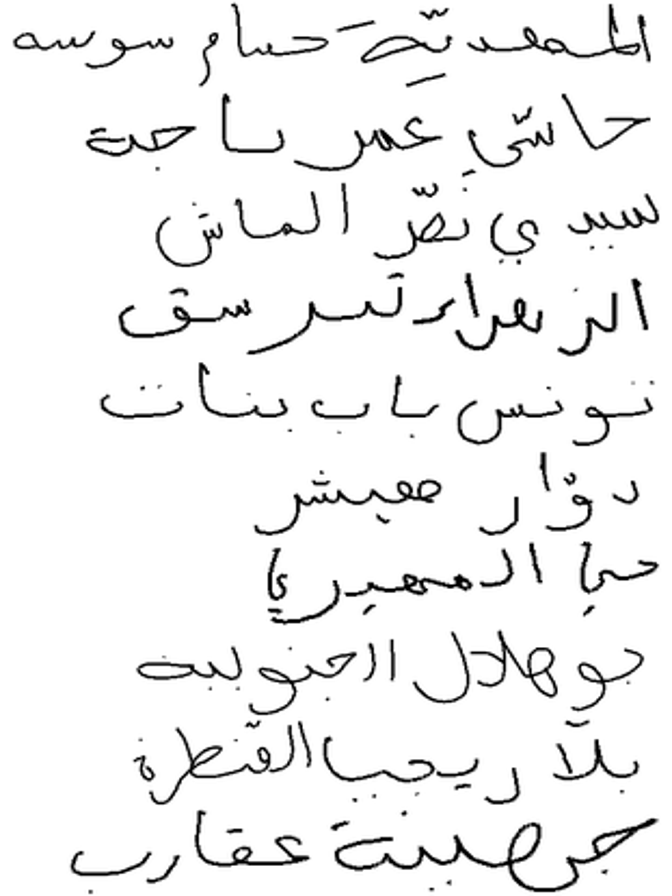 المهديّة حمام سوسه
حاسّي عمر باجة
سيدي نصّر الماش
الزهراء تبرسق
تونس باب بنات
دوّار هيشر
حي المهيري
بوهلال الجنوبية
بلّاريجيا القنطرة
جهينة عقارب